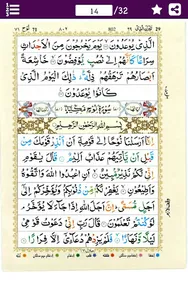 14 /32
الَّذِىْ يُوْعَدُوْنَ يَوْمَ يَخْرُجُوْنَ مِنَ الْاَجْدَاثِ
سِرَاعًا كَاَنَّهُمْ اِلٰى نُصُبٍ يُّوْفِضُوْنَ خَاشِعَةً
اَبْصَارُهُمْ تَرْهَقُهُمْ ذِلَّةٌ ذٰلِكَ الْيَوْمُ الَّذِىْ
كَانُوْا يُوْعَدُوْنَ
سُوْرَةُ نُوْحٍ مَكِّيَّةٌ
بِسْمِ اللّٰهِ الرَّحْمٰنِ الرَّحِيْمِ
اِنَّاۤ اَرْسَلْنَا نُوْحًا اِلٰى قَوْمِهٖۤ اَنْ اَنْذِرْ قَوْمَكَ مِنْ
قَبْلِ اَنْ يَّاْتِيَهُمْ عَذَابٌ اَلِيْمٌ قَالَ يٰقَوْمِ اِنِّىْ
لَكُمْ نَذِيْرٌ مُّبِيْنٌ اَنِ اعْبُدُوا اللّٰهَ وَاتَّقُوْهُ وَاَطِيْعُوْنِ
يَغْفِرْ لَكُمْ مِّنْ ذُنُوْبِكُمْ وَيُؤَخِّرْكُمْ اِلٰۤى اَجَلٍ
مُّسَمًّى اِنَّ اَجَلَ اللّٰهِ اِذَا جَآءَ لَا يُؤَخَّرُ لَوْ
كُنْتُمْ تَعْلَمُوْنَ قَالَ رَبِّ اِنِّىْ دَعَوْتُ قَوْمِىْ
لَيْلًا وَّنَهَارًا فَلَمْ يَزِدْهُمْ دُعَآءِىْۤ اِلَّا فِرَارًا